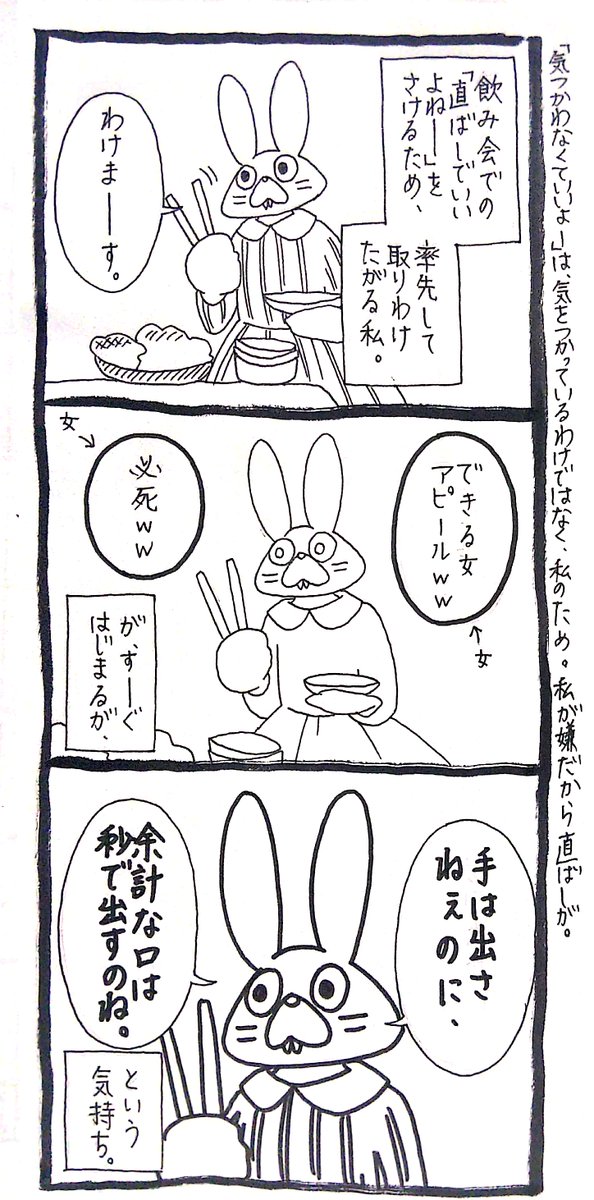 「気つかわなくていいよ」は、気をつかっているわけではなく、私のため。私が嫌だから直ばしが。
飲み会での
「直ばしでいい
よねー」を
さけるため、
率先して
取りわけ
たがる私。
わけまーす。
できる女
アピールww
↑女
女
↓
必死ww
が、すーぐ
はじまるが、
手は出さ
ねぇのに、
余計な口は
秒で出すのね。
という
気持ち。